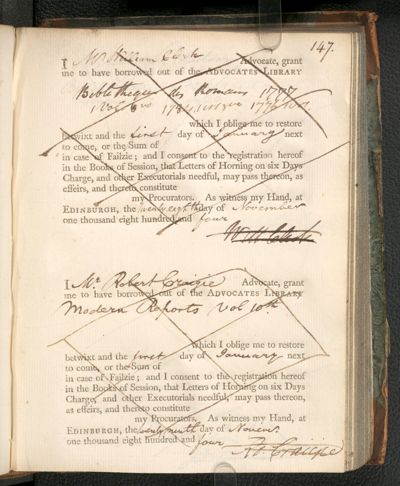 147.
I Mr William Clerk Advocate, grant
me to have borrowed out of the ADVOCATES LIBRARY
Bibliotheque des Romans 1777
1 Vol 8vo 1784 1776
which I oblige me to restore
betwixt and the first day of January next
to come, or the Sum of
in case of Failzie; and I consent to the registration hereof
in the Books of Session, that Letters of Horning on six Days
Charge, and other Executorials needful, may pass thereon, as
effeirs, and thereto constitute
my Procurators. As witness my Hand, at
EDINBURGH, the twenty eighth day of November
one thousand eight hundred and four
Will Clerk
I Mr. Robert Craigie Advocate, grant
me to have borrowed out of the ADVOCATES LIBRARY
Modern Reports Vol 10th
which I oblige me to restore
betwixt and the first day of January next
to come, or the Sum of
in case of Failzie; and I consent to the registration hereof
in the Books of Session, that Letters of Horning on six Days
Charge, and other Executorials needful, may pass thereon,
as effeirs, and thereto constitute
my Procurators. As witness my Hand, at
EDINBURGH, the twenty ninth day of Novemr.
one thousand eight hundred and four
Rt. Craigie